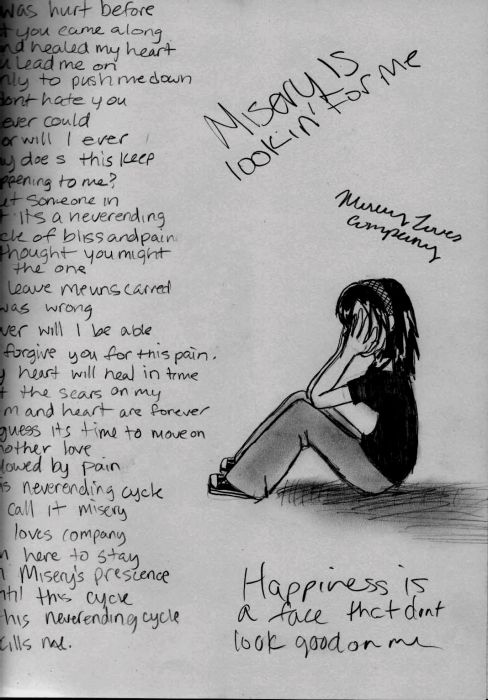 was hurt before
t you came along
nd healed my heart
u lead me on
nly to push me down
dont hate you
ever could
or will I ever
y does this keep
ppening to me?
et someone in
t its a neverending
cle of bliss and pain
thought you might
the one
leave me unscarred
was wrong
ver will I be able
forgive you for this pain.
y heart will heal in time
t the scars on my
m and heart are forever
guess its time to move on
nother love
lowed by pain
is neverending cycle
call it misery
loves company
m here to stay
n Misery's prescence
ntil this cycle
this neverending cycle
kills me.
Misery Is
lookin' For Me
Misery Loves
Company
Happiness is
a face that dont
look good on me